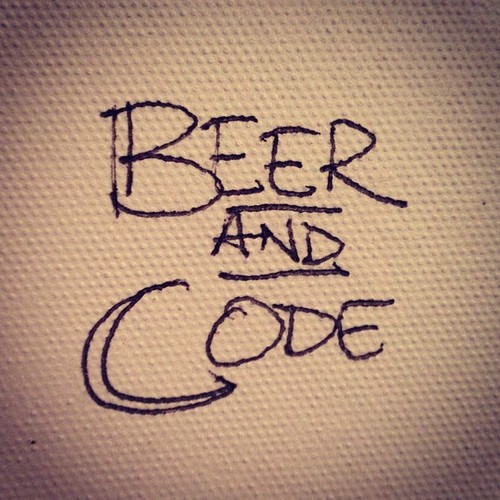 BEER
AND
CODE